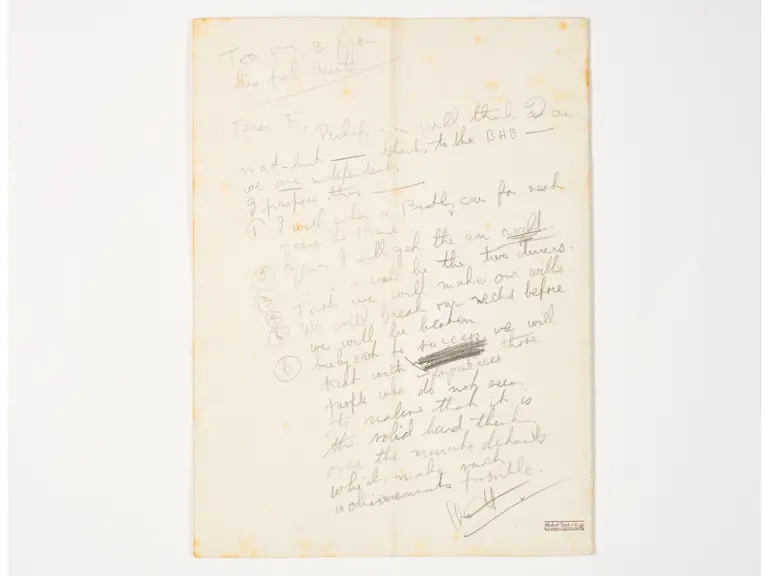 To F. B from
his pal
Dear F, Perhaps you will think I am
mad – but — thanks to the BHB —
we are independent.
I propose this —
1 I will enter a Bently car for next
years Le Mans.
2 You & I will get the car right.
3 You & I will be the two drivers.
4 Tonight we will make our wills.
5 We will break our necks before
we will be beaten
6 Subject to success we will
treat with those
people who do not seem
to realise that it is
the solid hard thinking
over the minute details
which make such
achievements possible.